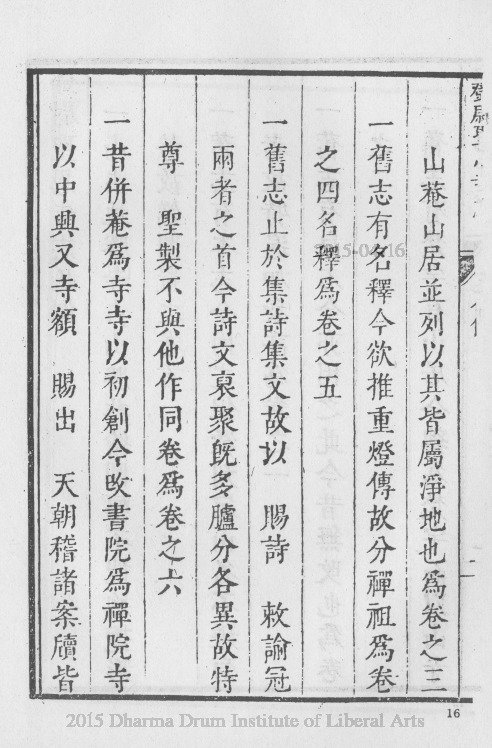 山菴山居並列以其皆屬淨地也爲卷之三
一舊志有名釋今欲推重燈傳故分禪祖爲卷
之四名釋爲卷之五
一舊志止於集詩集文故以　賜詩　敕諭冠
兩者之首今詩文裒聚旣多臚分各異故特
尊　聖製不與他作同卷爲卷之六
一昔併菴爲寺寺以初創今攺書院爲禪院寺
以中興又寺額　賜出　天朝稽諸案牘皆
16
2015 Dharma Drum Institute of Liberal Arts